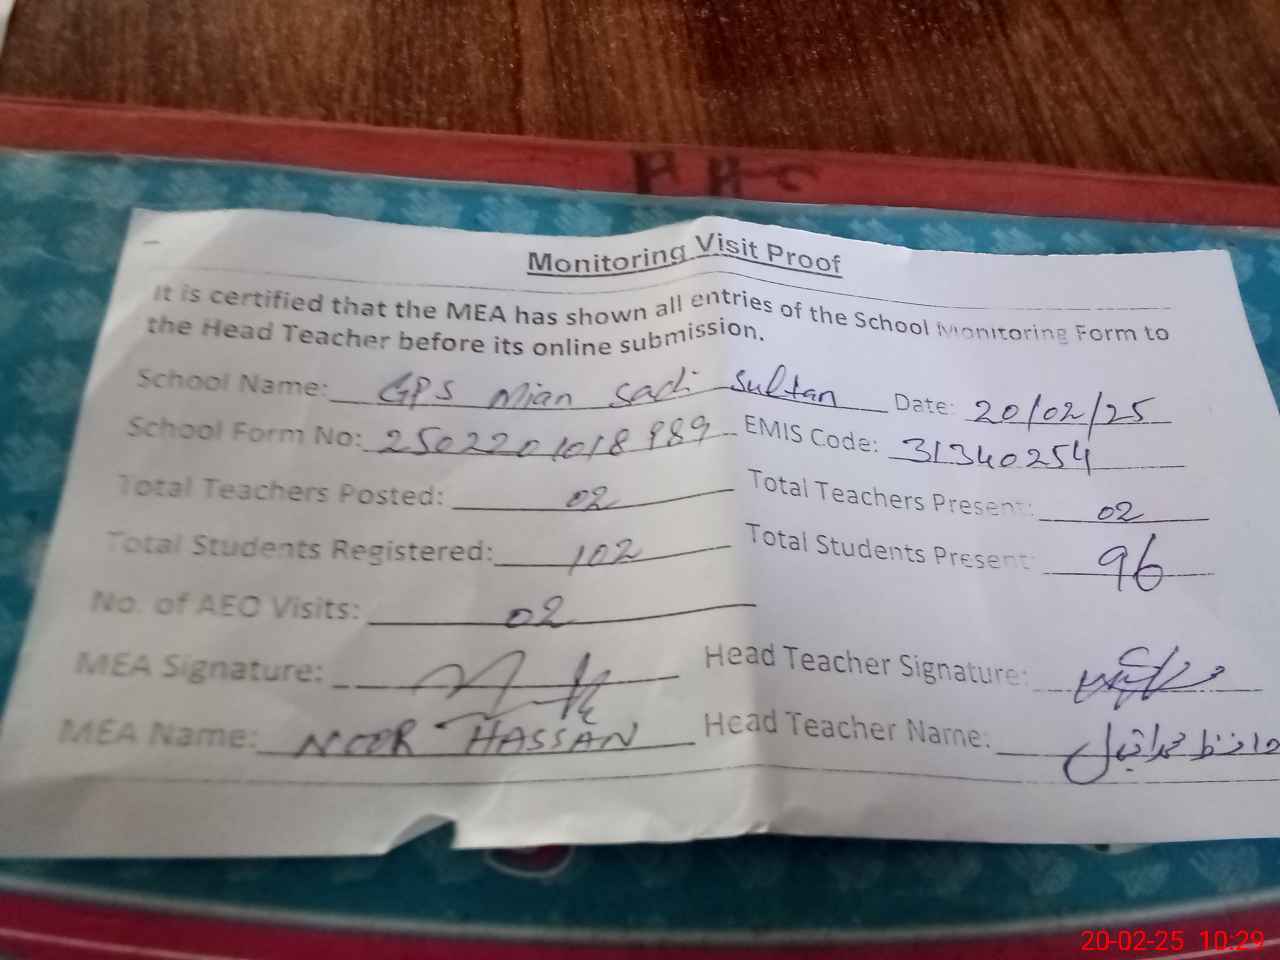 Monitoring Visit Proof
It is certified that the MEA has shown all entries of the School Monitoring Form to
the Head Teacher before its online submission.
School Name: GPS Mian Sadi Sultan Date: 20/02/25
School Form No: 2502201018989 EMIS Code: 31340254
Total Teachers Posted: 02 Total Teachers Present: 02
Total Students Registered: 102 Total Students Present: 96
No. of AEO Visits: 02
MEA Signature: Head Teacher Signature:
MEA Name: NOOR HASSAN Head Teacher Name: حافظ محمد اقبال
20-02-25 10:29